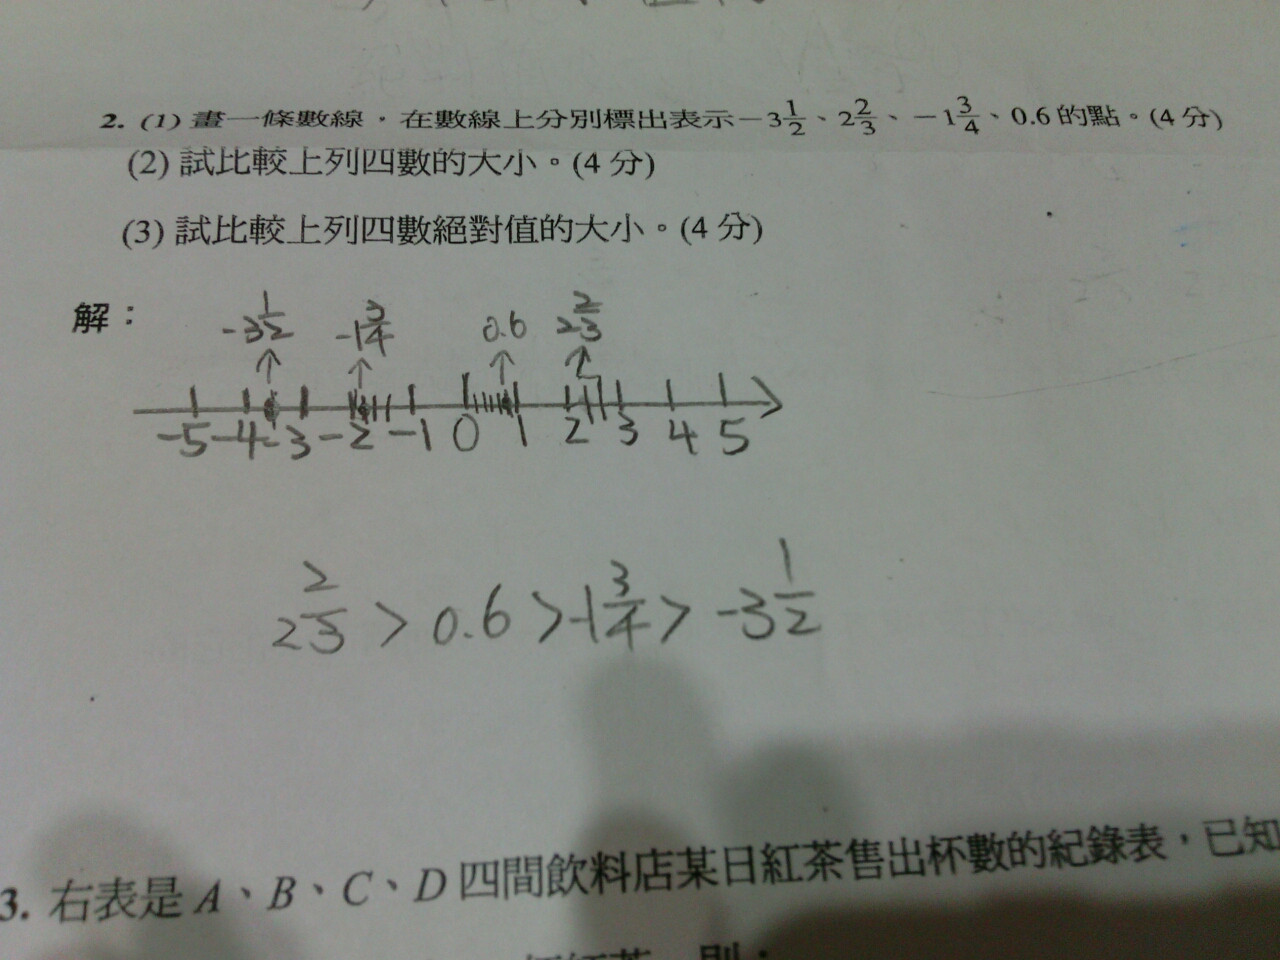 2. (1) 畫一條數線，在數線上分別標出表示－3 1/2、2 2/3、－1 3/4、0.6 的點。(4 分)
(2) 試比較上列四數的大小。(4 分)
(3) 試比較上列四數絕對值的大小。(4 分)
解：
-3 1/2 -1 3/4 0.6 2 2/3
-5 -4 -3 -2 -1 0 1 2 3 4 5
2 2/3 > 0.6 > -1 3/4 > -3 1/2
3. 右表是 A、B、C、D 四間飲料店某日紅茶售出杯數的紀錄表，已知